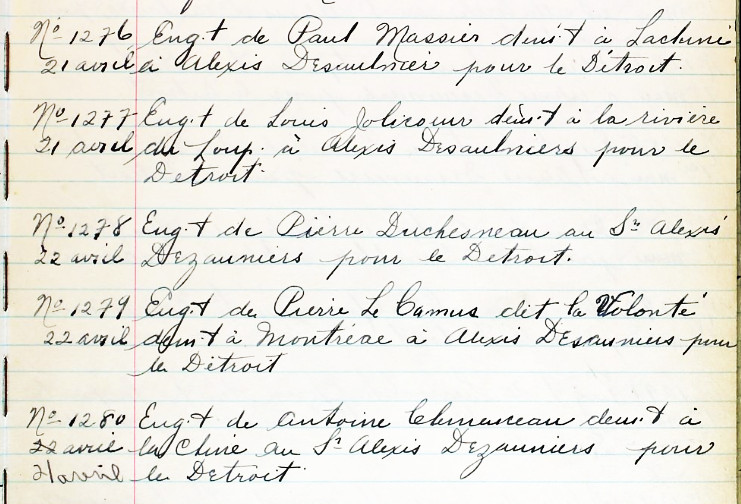 No 1276 Eng.t de Paul Massier dems't à Lachine
21 avril à Alexis Desaulnier pour le Détroit.
No 1277 Eng.t de Louis Jolicoeur dems't à la rivière
21 avril du Loup. à Alexis Desaulniers pour le
Detroit.
No 1278 Eng.t de Pierre Duchesneau au Sr Alexis
22 avril Dezauniers pour le Detroit.
No 1279 Eng.t de Pierre Le Camus dit la Volonté
22 avril demt à Montréal à Alexis Desauniers pour
le Détroit
No 1280 Eng.t de Antoine demt à
22 avril la Chine au Sr Alexis Dezauniers pour
21 avril le Detroit.